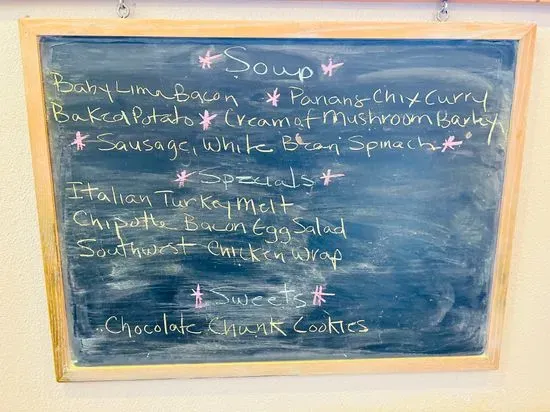 * Soup *
Baby Lima Bacon * Panang Chix Curry
Baked Potato * Cream of Mushroom Barley
* Sausage, White Bean Spinach *
* Specials *
Italian Turkey Melt
Chipotle Bacon Egg Salad
Southwest Chicken Wrap
* Sweets *
Chocolate Chunk Cookies